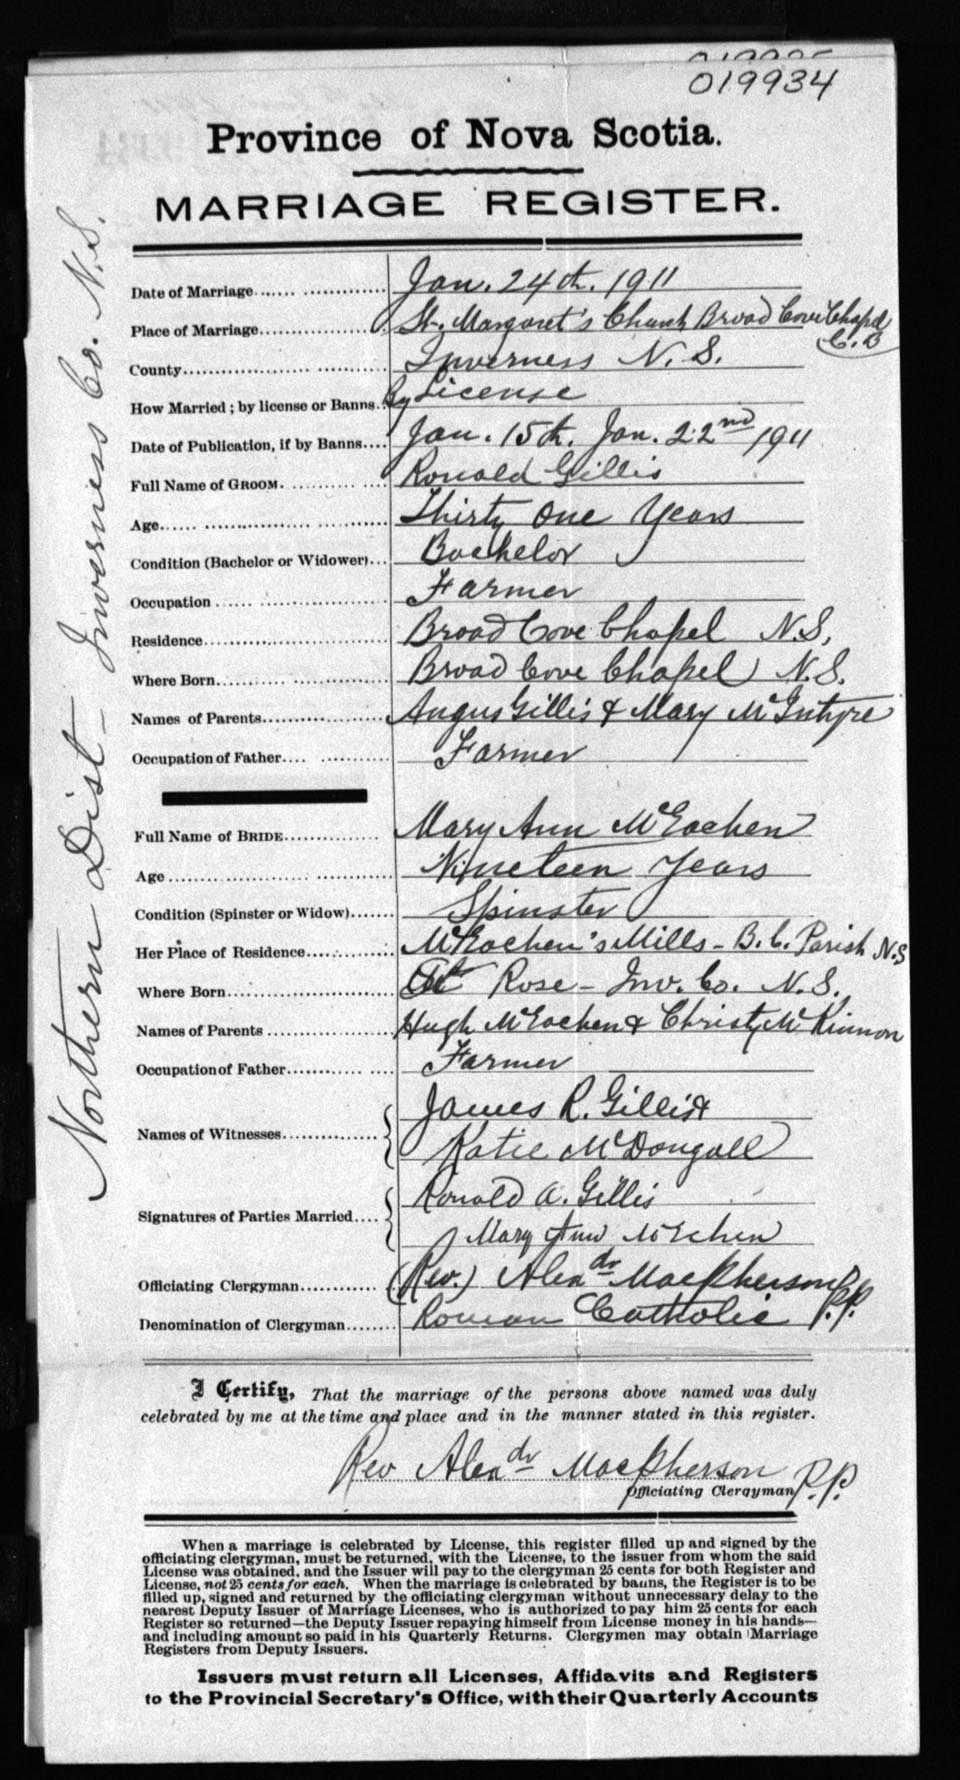 019934
Province of Nova Scotia.
MARRIAGE REGISTER.
Northern Dist - Inverness Co. N.S.
Date of Marriage........ Jan. 24th. 1911
Place of Marriage........ St. Margaret's Church Broad Cove Chapel C.B
County........ Inverness N.S.
How Married; by license or Banns.. By License
Date of Publication, if by Banns.... Jan. 15th. Jan. 22nd 1911
Full Name of GROOM........ Ronald Gillis
Age........ Thirty One Years
Condition (Bachelor or Widower)... Bachelor
Occupation........ Farmer
Residence........ Broad Cove Chapel N.S.
Where Born........ Broad Cove Chapel N.S.
Names of Parents........ Angus Gillis & Mary McIntyre
Occupation of Father........ Farmer
Full Name of BRIDE........ Mary Ann McEachen
Age........ Nineteen Years
Condition (Spinster or Widow)....... Spinster
Her Place of Residence........ McEachen's Mills - B.C. Parish N.S
Where Born........ At Rose - Inv. Co. N.S.
Names of Parents........ Hugh McEachen & Christy McKinnon
Occupation of Father........ Farmer
Names of Witnesses........ James R. Gillis &
Katie McDougall
Signatures of Parties Married.... Ronald A. Gillis
Mary Ann McEchen
Officiating Clergyman........ (Rev.) Alexdr MacPherson P.P.
Denomination of Clergyman........ Roman Catholic
I Certify, That the marriage of the persons above named was duly
celebrated by me at the time and place and in the manner stated in this register.
Rev Alexdr MacPherson P.P.
Officiating Clergyman
When a marriage is celebrated by License, this register filled up and signed by the
officiating clergyman, must be returned, with the License, to the issuer from whom the said
License was obtained, and the Issuer will pay to the clergyman 25 cents for both Register and
License, not 25 cents for each. When the marriage is celebrated by banns, the Register is to be
filled up, signed and returned by the officiating clergyman without unnecessary delay to the
nearest Deputy Issuer of Marriage Licenses, who is authorized to pay him 25 cents for each
Register so returned—the Deputy Issuer repaying himself from License money in his hands—
and including amount so paid in his Quarterly Returns. Clergymen may obtain Marriage
Registers from Deputy Issuers.
Issuers must return all Licenses, Affidavits and Registers
to the Provincial Secretary's Office, with their Quarterly Accounts